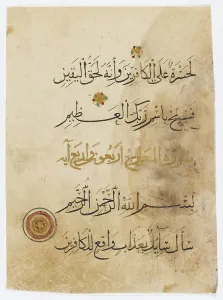 لحسرة على الكافرين وانه لحق اليقين
فسبح باسم ربك العظيم
سورة المعارج اربعون واربع آية
بسم الله الرحمن الرحيم
سأل سائل بعذاب واقع للكافرين